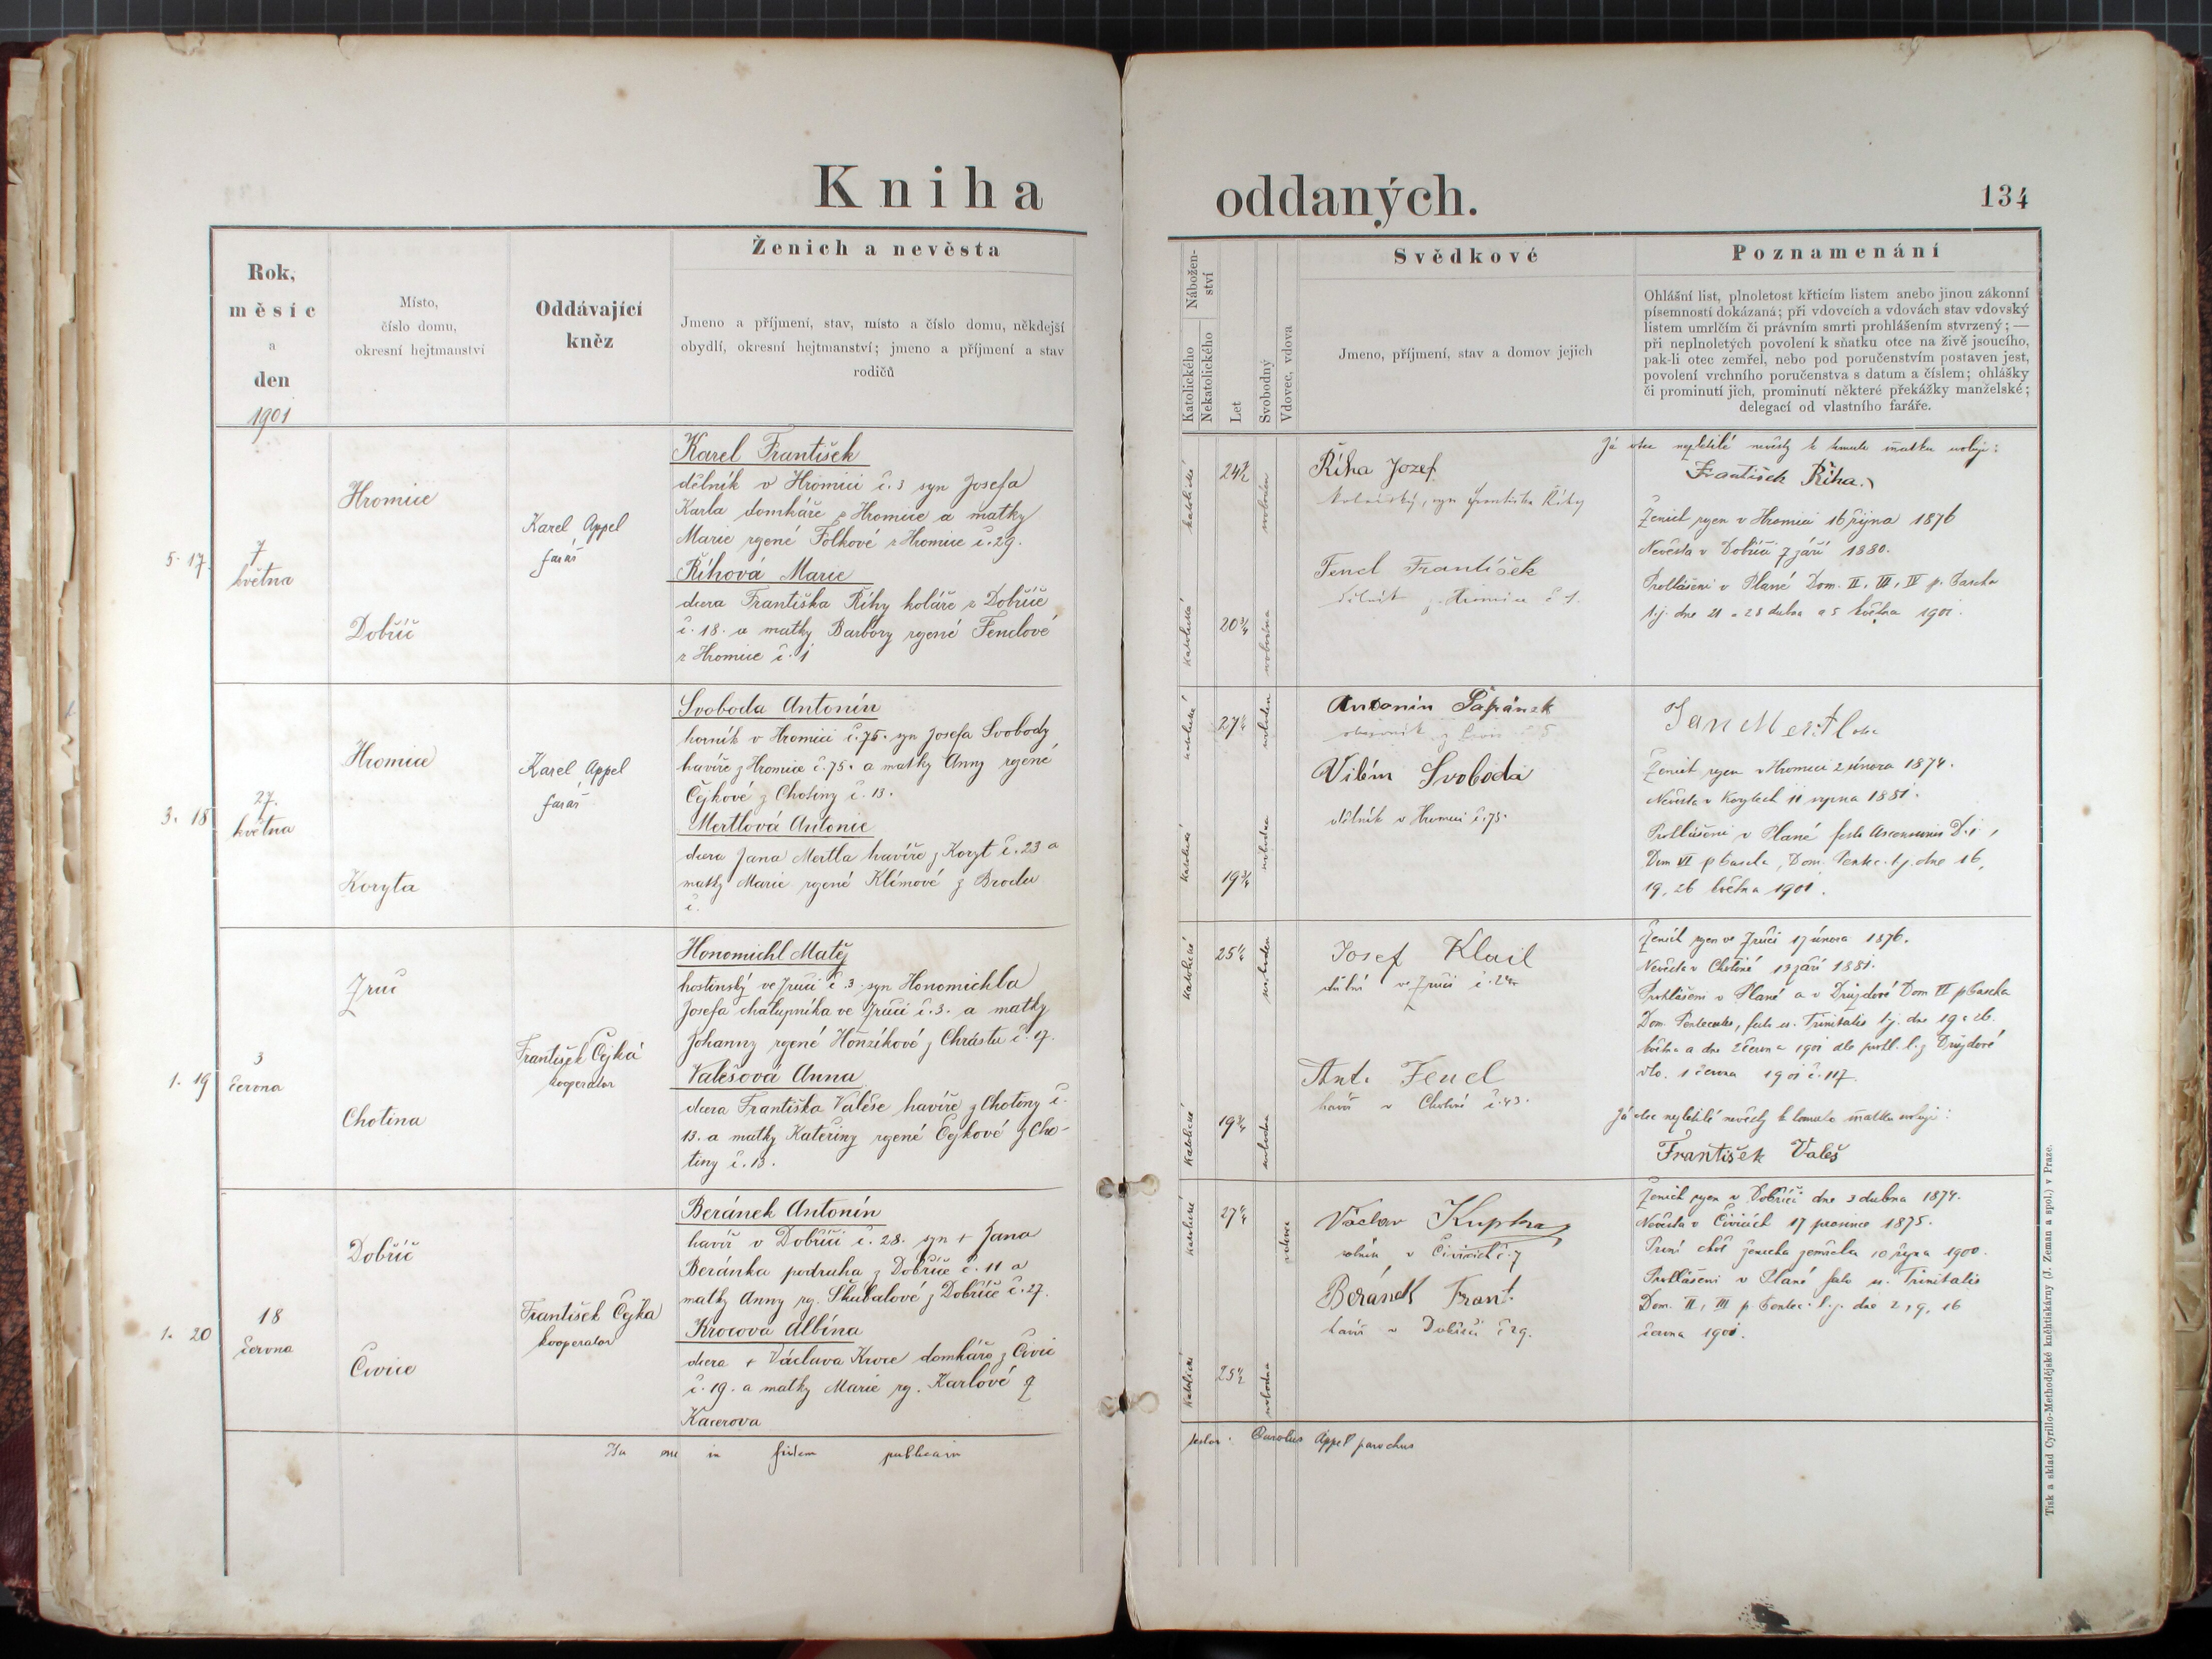 Kniha oddaných.
134
Rok,
měsíc
a
den
1901
Místo,
číslo domu,
okresní hejtmanství
Oddávající
kněz
Ženich a nevěsta
Jmeno a příjmení, stav, místo a číslo domu, někdejší
obydlí, okresní hejtmanství; jmeno a příjmení a stav
rodičů
Nábožen-
ství
Katolického
Nekatolického
Let
Svobodný
Vdovec, vdova
Svědkové
Jmeno, příjmení, stav a domov jejich
Poznamenání
Ohlášní list, plnoletost křticím listem anebo jinou zákonní
písemností dokázaná; při vdovcích a vdovách stav vdovský
listem umrlčím či právním smrti prohlášením stvrzený; —
při neplnoletých povolení k sňatku otce na živě jsoucího,
pak-li otec zemřel, nebo pod poručenstvím postaven jest,
povolení vrchního poručenstva s datum a číslem; ohlášky
či prominutí jich, prominutí některé překážky manželské;
delegací od vlastního faráře.
5. 17.
7
května
Hromice
Dobříč
Karel Appel
farář
Karel František
dělník v Hromici č. 3 syn Josefa
Karla domkáře z Hromice a matky
Marie rozené Fölkové z Hromice č. 29.
Říhová Marie
dcera Františka Říhy koláře z Dobříče
č. 18. a matky Barbory rozené Fenclové
z Hromice č. 1
katolické
24 1/2
svoboden
katolické
20 3/4
svobodna
Říha Jozef
kolářský, syn Františka Říhy
Fencl František
dělník z Hromice č. 1.
Já otec nezletilé nevěsty k tomuto sňatku svoluji:
František Říha.
Ženich rozen v Hromici 16 října 1876
Nevěsta v Dobříči 7 září 1880.
Prohlášeni v Plané Dom. II, III, IV p. Pascha
t.j. dne 21 a 28 dubna a 5 května 1901.
3. 18
27.
května
Hromice
Koryta
Karel Appel
farář
Svoboda Antonín
horník v Hromici č. 75. syn Josefa Svobody
havíře z Hromice č. 75. a matky Anny rozené
Čejkové z Chotiny č. 13.
Mertlová Antonie
dcera Jana Mertla havíře z Koryt č. 23 a
matky Marie rozené Klímové z Brodu
č.
katolické
27 1/4
svoboden
katolické
19 3/4
svobodna
Antonin Šafránek
Vilém Svoboda
dělník v Hromici č. 75.
Jan Mertl otec
Ženich rozen v Hromici 2 února 1874.
Nevěsta v Korytech 11 srpna 1881.
Prohlášeni v Plané festo Ascensionis D.,
Dom VI p Pascha, Dom. Pentec. t.j. dne 16,
19, 26 května 1901.
1. 19
3
června
Zruč
Chotina
František Čejka
kooperator
Honomichl Matěj
hostinský ve Zruči č. 3. syn Honomichla
Josefa chalupníka ve Zruči č. 3. a matky
Johanny rozené Honzíkové z Chrástu č. 17.
Valešová Anna
dcera Františka Valeše havíře z Chotiny č.
13. a matky Kateřiny rozené Čejkové z Cho-
tiny č. 13.
katolické
25 1/4
svoboden
katolické
19 3/4
svobodna
Josef Klail
důlní ve Zruči č. 24
Ant. Fencl
havíř v Chotiné č. 43.
Ženich rozen ve Zruči 17 února 1876.
Nevěsta v Chotiné 13 září 1881.
Prohlášeni v Plané a v Druzdové Dom VI p Pascha
Dom. Pentecostes, festo ss. Trinitatis t.j. dne 19 a 26.
května a dne 2 června 1901 dle prohl. l. z Druzdové
dto. 1 června 1901 č. 117.
Já otec nezletilé nevěsty k tomuto sňatku svoluji:
František Valeš
1. 20
18
června
Dobříč
Čivice
František Čejka
kooperator
Beránek Antonín
havíř v Dobříči č. 28. syn + Jana
Beránka podruha z Dobříče č. 11 a
matky Anny roz. Škubalové z Dobříče č. 27.
Krocová Albína
dcera + Václava Kroce domkáře z Čivic
č. 19. a matky Marie roz. Karlové z
Kacerova
katolické
27 1/4
vdovec
katolické
25 1/2
svobodna
Václav Kupka
rolník v Čivicích č. 7
Beránek Frant.
havíř v Dobříči č 29.
Ženich rozen v Dobříči dne 3 dubna 1874.
Nevěsta v Čivicích 17 prosince 1875.
První choť ženicha zemřela 10 října 1900.
Prohlášeni v Plané festo ss. Trinitatis
Dom. II, III p. Pentec. t.j. dne 2, 9, 16
června 1901.
Ita me in fidem publicam
testor: Carolus Appel parochus
Tisk a sklad Cyrillo-Methodějské knihtiskárny (J. Zeman a spol.) v Praze.